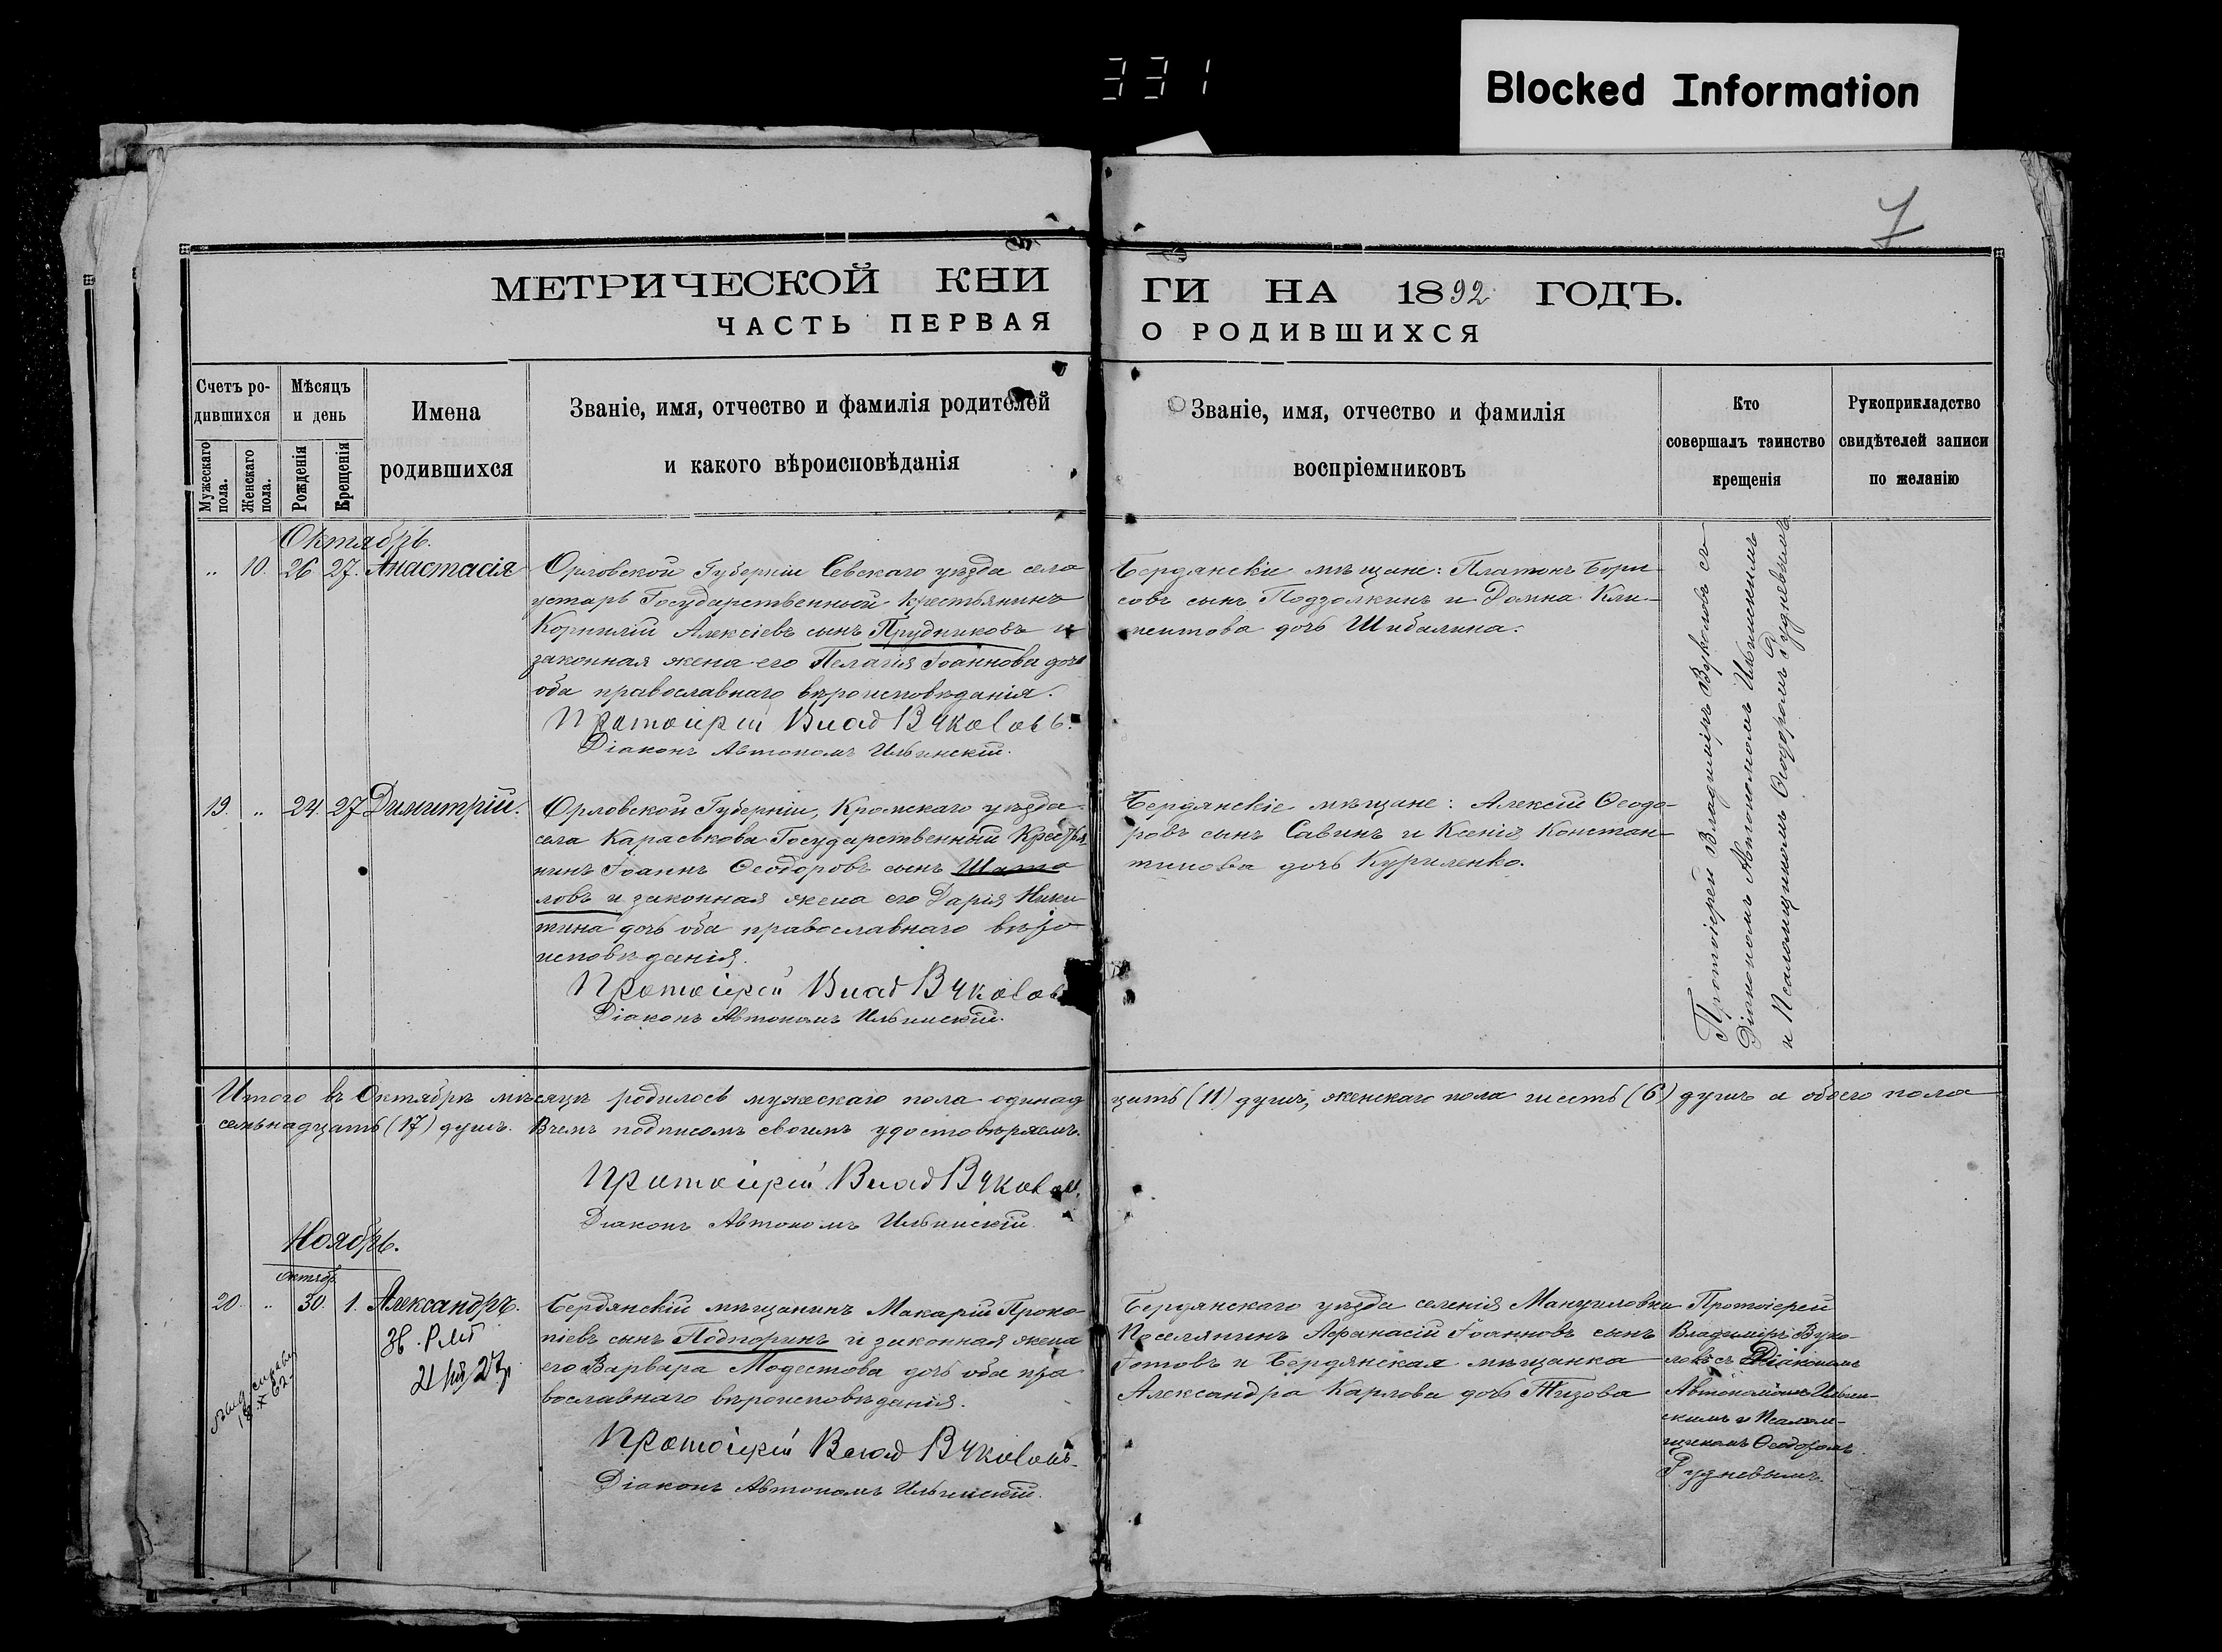 331
Blocked Information
7
МЕТРИЧЕСКОЙ КНИ
ГИ НА 1892 ГОДЪ.
ЧАСТЬ ПЕРВАЯ
О РОДИВШИХСЯ
Счетъ ро-
дившихся
Мужескаго пола.
Женскаго пола.
Мѣсяцъ
и день
Рожденія
Крещенія
Имена
родившихся
Званіе, имя, отчество и фамилія родителей
и какого вѣроисповѣданія
Званіе, имя, отчество и фамилія
воспріемниковъ
Кто
совершалъ таинство
крещенія
Рукоприкладство
свидѣтелей записи
по желанію
Октябрь.
" 10. 26 27. Анастасія
Орловской Губерніи Севскаго уѣзда села
устарь Государственной Крестьянинъ
Корнилій Алексіевъ сынъ Прудниковъ и
законная жена его Пелагія Іоаннова дочь
оба православнаго вѣроисповѣданія.
Протоіерей Влад Вуколовъ.
Діаконъ Автономъ Ильинскій.
Бердянскіе мѣщане: Платонъ Бори-
совъ сынъ Подзолкинъ и Домна Кли-
ментова дочь Шибалина.
Протоіерей Владиміръ Вуколовъ съ
Діакономъ Автономомъ Ильинскимъ
и Псаломщикомъ Ѳеодоромъ Рудневымъ.
19. " 24. 27 Димитрій.
Орловской Губерніи, Кромскаго уѣзда
села Караськова Государственный Крестья
нинъ Іоаннъ Ѳеодоровъ сынъ Шата
ловъ и законная жена его Дарія Ники
тина дочь оба православнаго вѣро
исповѣданія.
Протоіерей Влад Вуколов
Діаконъ Автономъ Ильинскій.
Бердянскіе мѣщане: Алексій Ѳеодо-
ровъ сынъ Савинъ и Ксенія Констан-
тинова дочь Куриленко.
Итого въ Октябрѣ мѣсяцѣ родилось мужескаго пола одинад
цать (11) душъ, женскаго пола шесть (6) душъ а обоего пола
семьнадцать (17) душъ. Въ чемъ подписомъ своимъ удостовѣряемъ.
Протоіерей Влад Вуколов.
Діаконъ Автономъ Ильинскій.
Ноябрь.
Октябр.
20. " 30. 1. Александръ.
18.X 62.
Бердянскій мѣщанинъ Макарій Проко
піевъ сынъ Подпоринъ и законная жена
его Варвара Модестова дочь оба пра
вославнаго вѣроисповѣданія.
Протоіерей Влад Вуколовъ.
Діаконъ Автономъ Ильинскій.
Бердянскаго уѣзда селенія Мануиловки
Поселянинъ Аѳанасій Іоанновъ сынъ
Готовъ и Бердянская мѣщанка
Александра Карлова дочь Тизова
Протоіерей
Владиміръ Вуко-
ловъ съ Діакономъ
Автономомъ Ильин-
скимъ и Псалом-
щикомъ Ѳеодоромъ
Рудневымъ.